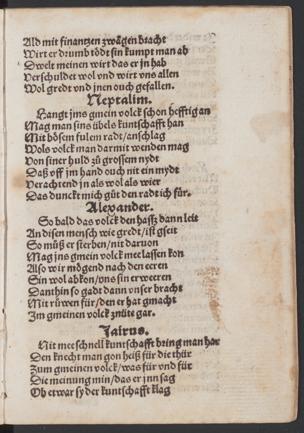 Ald mit finantzen zwägen bracht
Wirt er drumb tödt sin kumpt man ab
Dwelt meinen wirt das er jn hab
Verschuldet wol vnd wirt vns allen
Wol gredt vnd jnen ouch gefallen.
Neptalim.
Hangt jms gmein volck schon hefftig an
Mag man sins übels kuntschafft han
Mit bösem fulem radt/anschlag
Wols volck man darmit wenden mag
Von siner huld zů grossem nydt
Daß off jm hand ouch nit ein mydt
Verachtend jn als wol als wier
Das dunckt mich gůt den radt ich für.
Alexander.
So bald das volck den hassz dann leit
An disen mensch wie gredt/ist gseit
So můß er sterben/nit daruon
Mag jns gmein volck mee lassen kon
Also wir mögend nach den eeren
Sin wol abkon/vns sin erweeren
Danthin so gadt dann vnser bracht
Mit růwen für/den er hat gmacht
Im gmeinen volck znüte gar.
Jairus.
Nit mee schnell kuntschafft bring man har
Den knecht man gon heiß für die thür
Zum gmeinen volck/was für vnd für
Die meinung min/das er jnn sag
Ob etwar syder kuntschafft klag